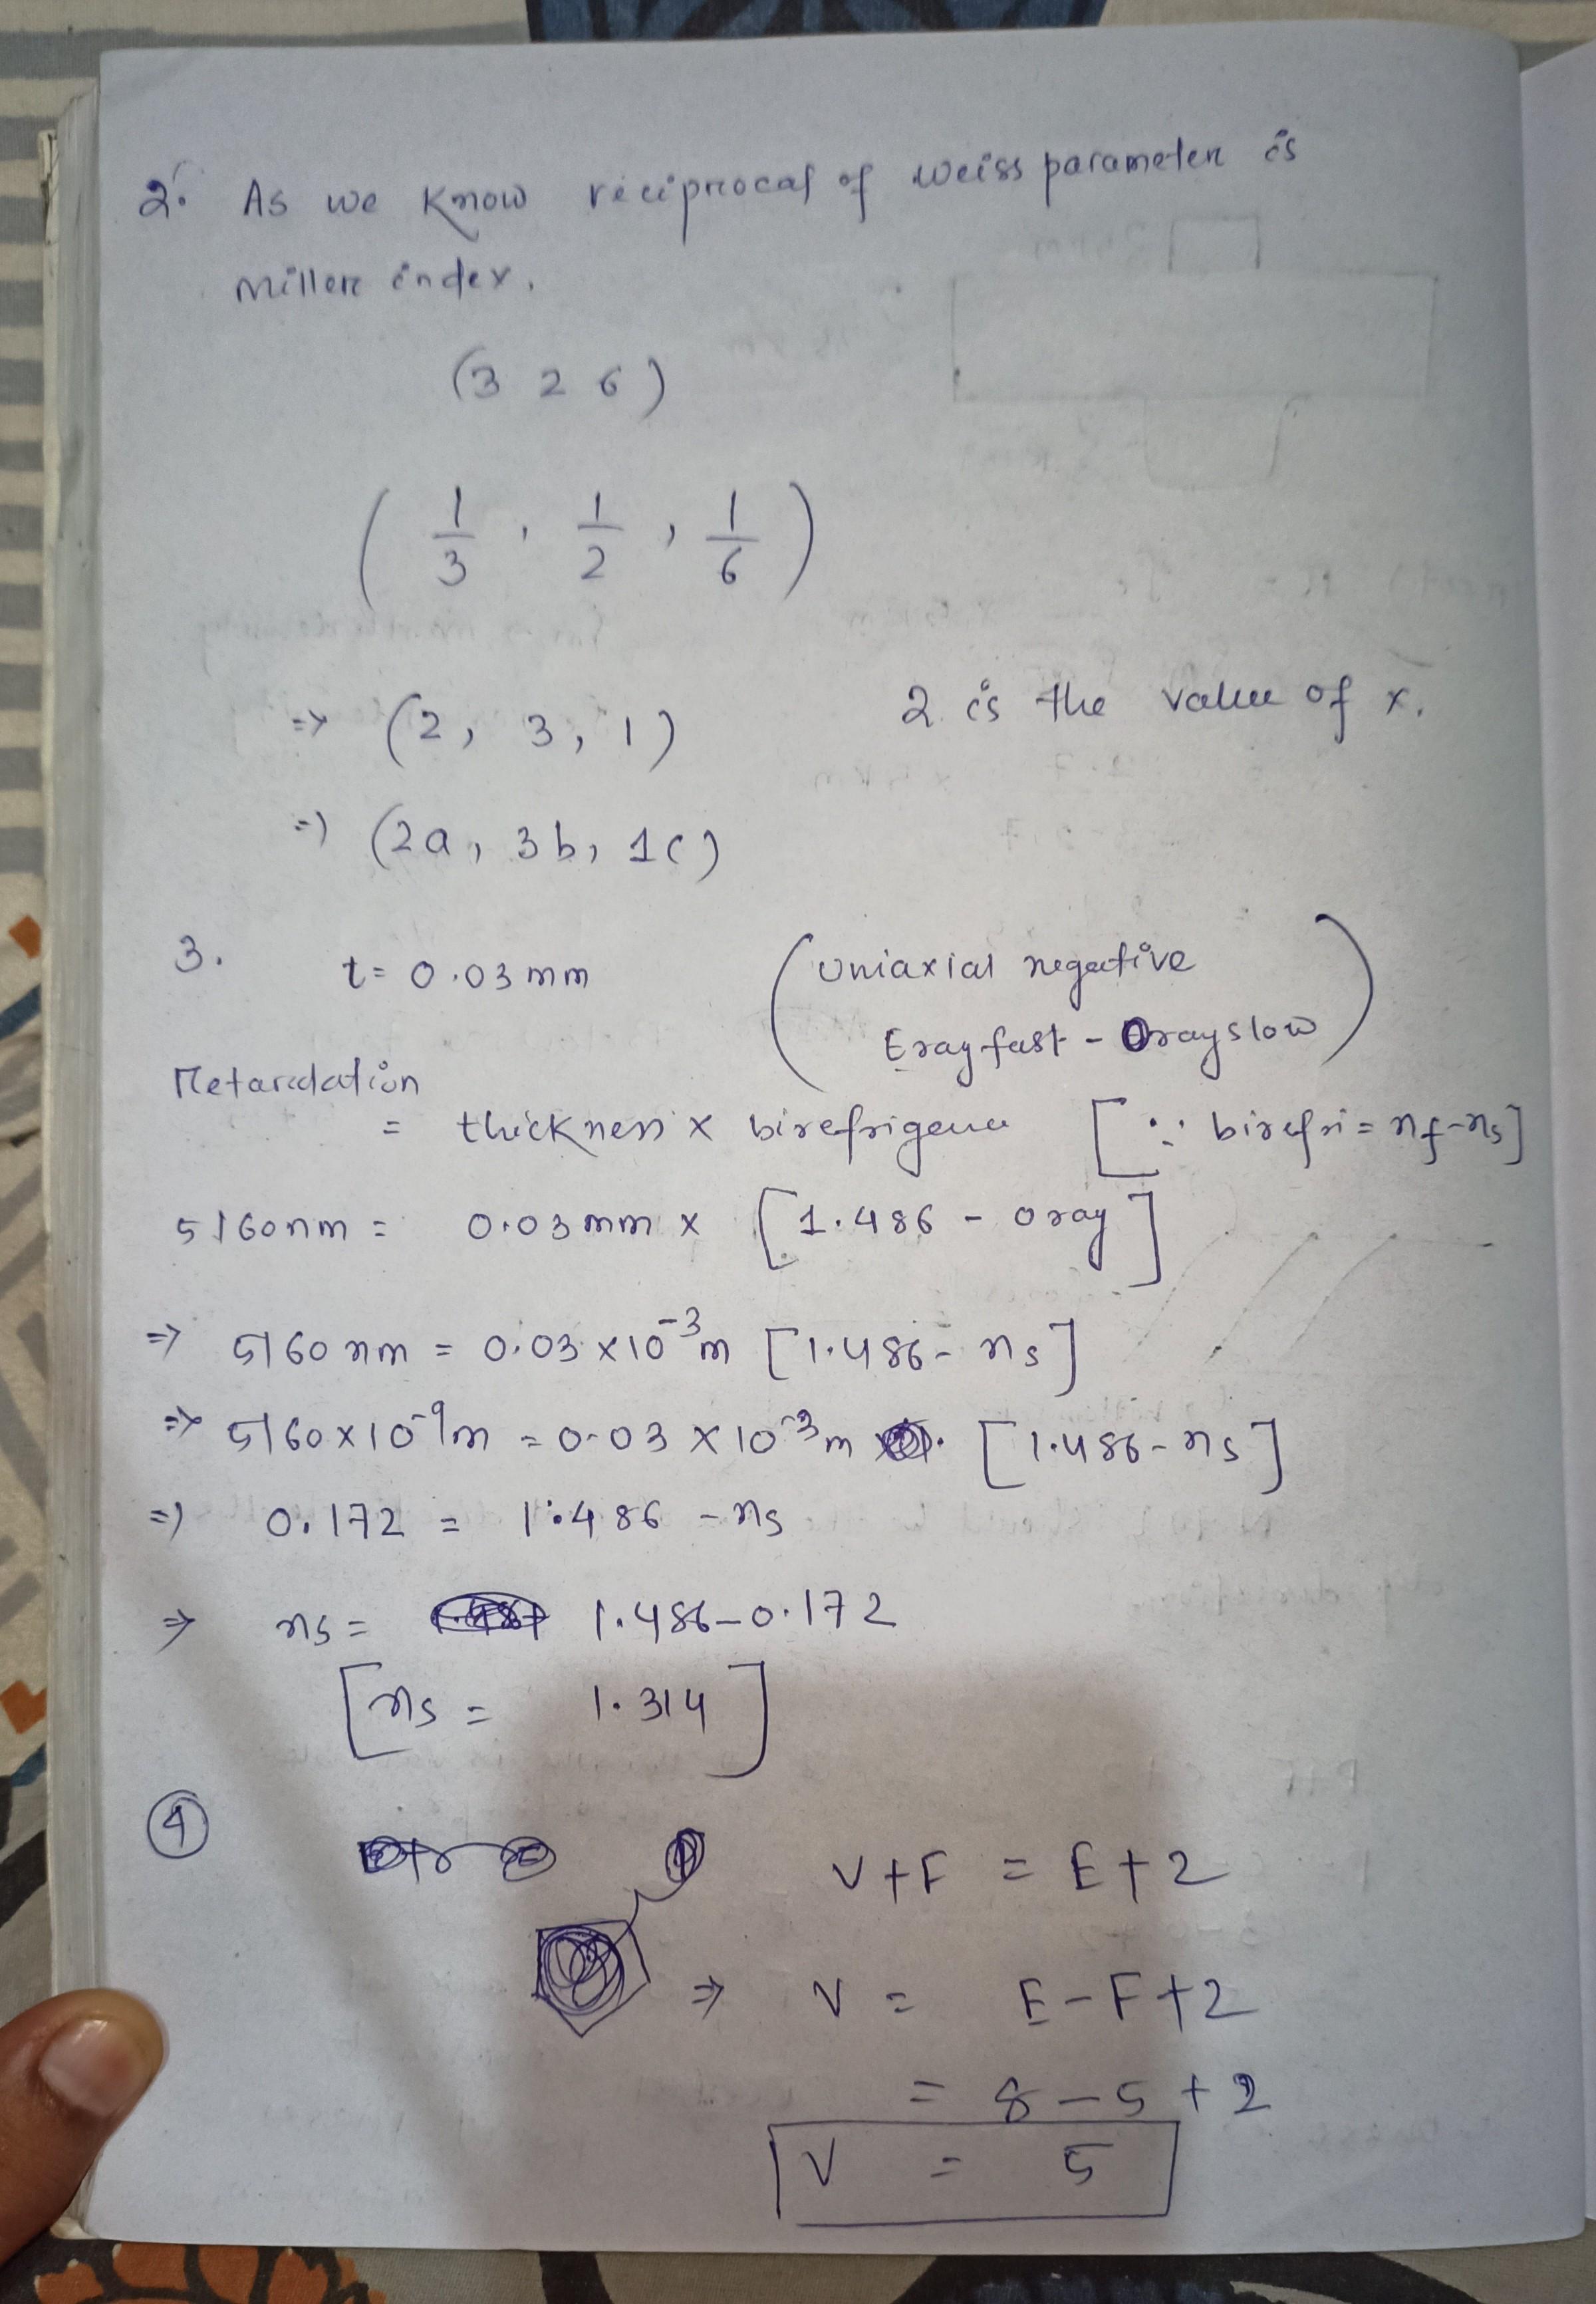 2. As we know reciprocal of weiss parameter is
Miller index.
(3 2 6)
(1/3, 1/2, 1/6)
⇒ (2, 3, 1) 2 is the value of x.
⇒ (2a, 3b, 1c)
3. t = 0.03 mm (Uniaxial negative
E ray fast - O ray slow)
Retardation
= thickness x birefrigence [∵ birefri = nf-ns]
5160nm = 0.03 mm x [1.486 - o ray]
⇒ 5160 nm = 0.03 x 10⁻³ m [1.486 - ns]
⇒ 5160 x 10⁻⁹ m = 0.03 x 10⁻³ m [1.486 - ns]
⇒ 0.172 = 1.486 - ns
⇒ ns = 1.486 - 0.172
[ns = 1.314]
④ V+F = E+2
⇒ V = E-F+2
= 8-5+2
V = 5